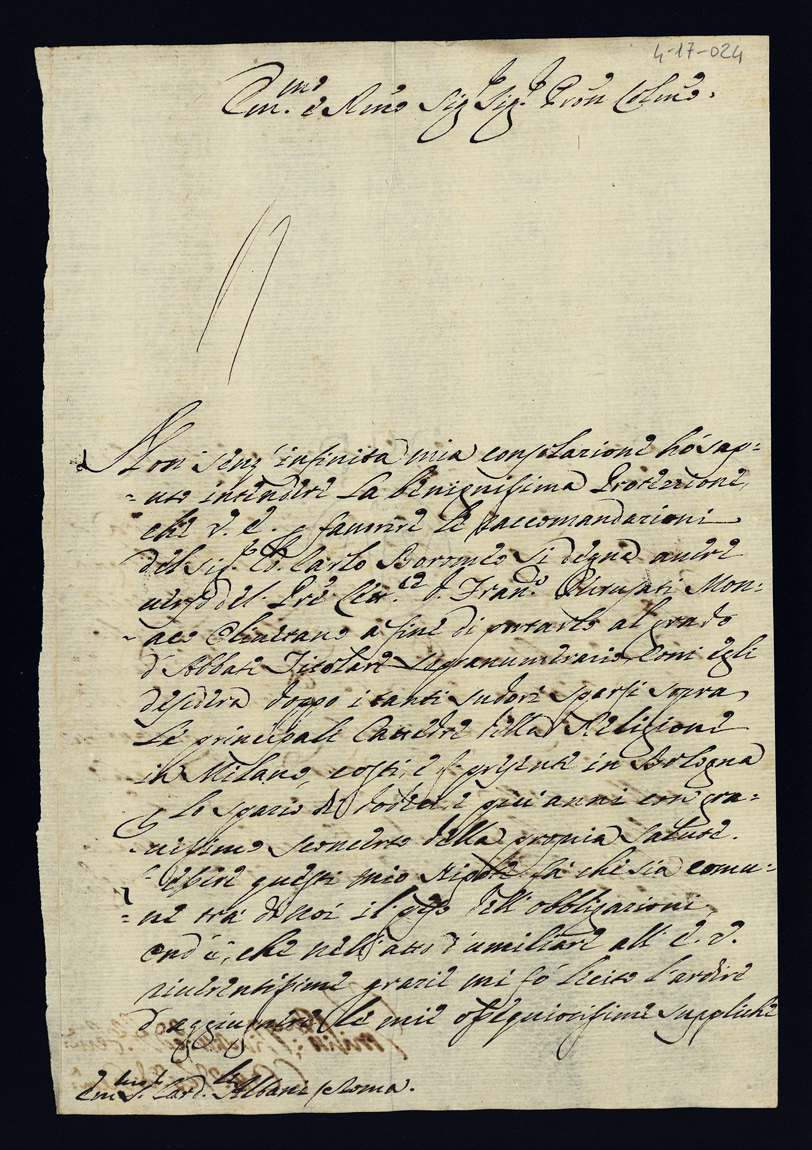 4-17-024
Em.mo e Rmo Sig.r Sig.r Pron Colmo.
Non senz'infinita mia consolazione hò sap=
=uto intendere la benignissima Protezzione,
che V. E. à favore le raccomandazioni
del Sig.r Co. Carlo Boromeo si degna avere
verso del Pre D. Fran.co Olivetano Mon=
=aco Olivetano a fine di portarlo al grado
d'Abbate Titolare sopranumerario, com'egli
desidera doppo i tanti sudori sparsi sopra
le principali Cattedre della Religione
in Milano, costì, e p presente in Bologna
p lo spazio di dodeci, e più anni con gra=
=vissimo sconcerto della propria salute.
L'essere questi mio Nipote fà che sia comu=
=ne trà di noi il peso dell'obbligazioni,
ond'è, che nell'atto d'umiliare all'E. V.
riverentissime grazie mi fò lecito l'ardire
d'aggiungere le mie ossequiosissime suppliche
Em.mo S. Card. Albani Roma.